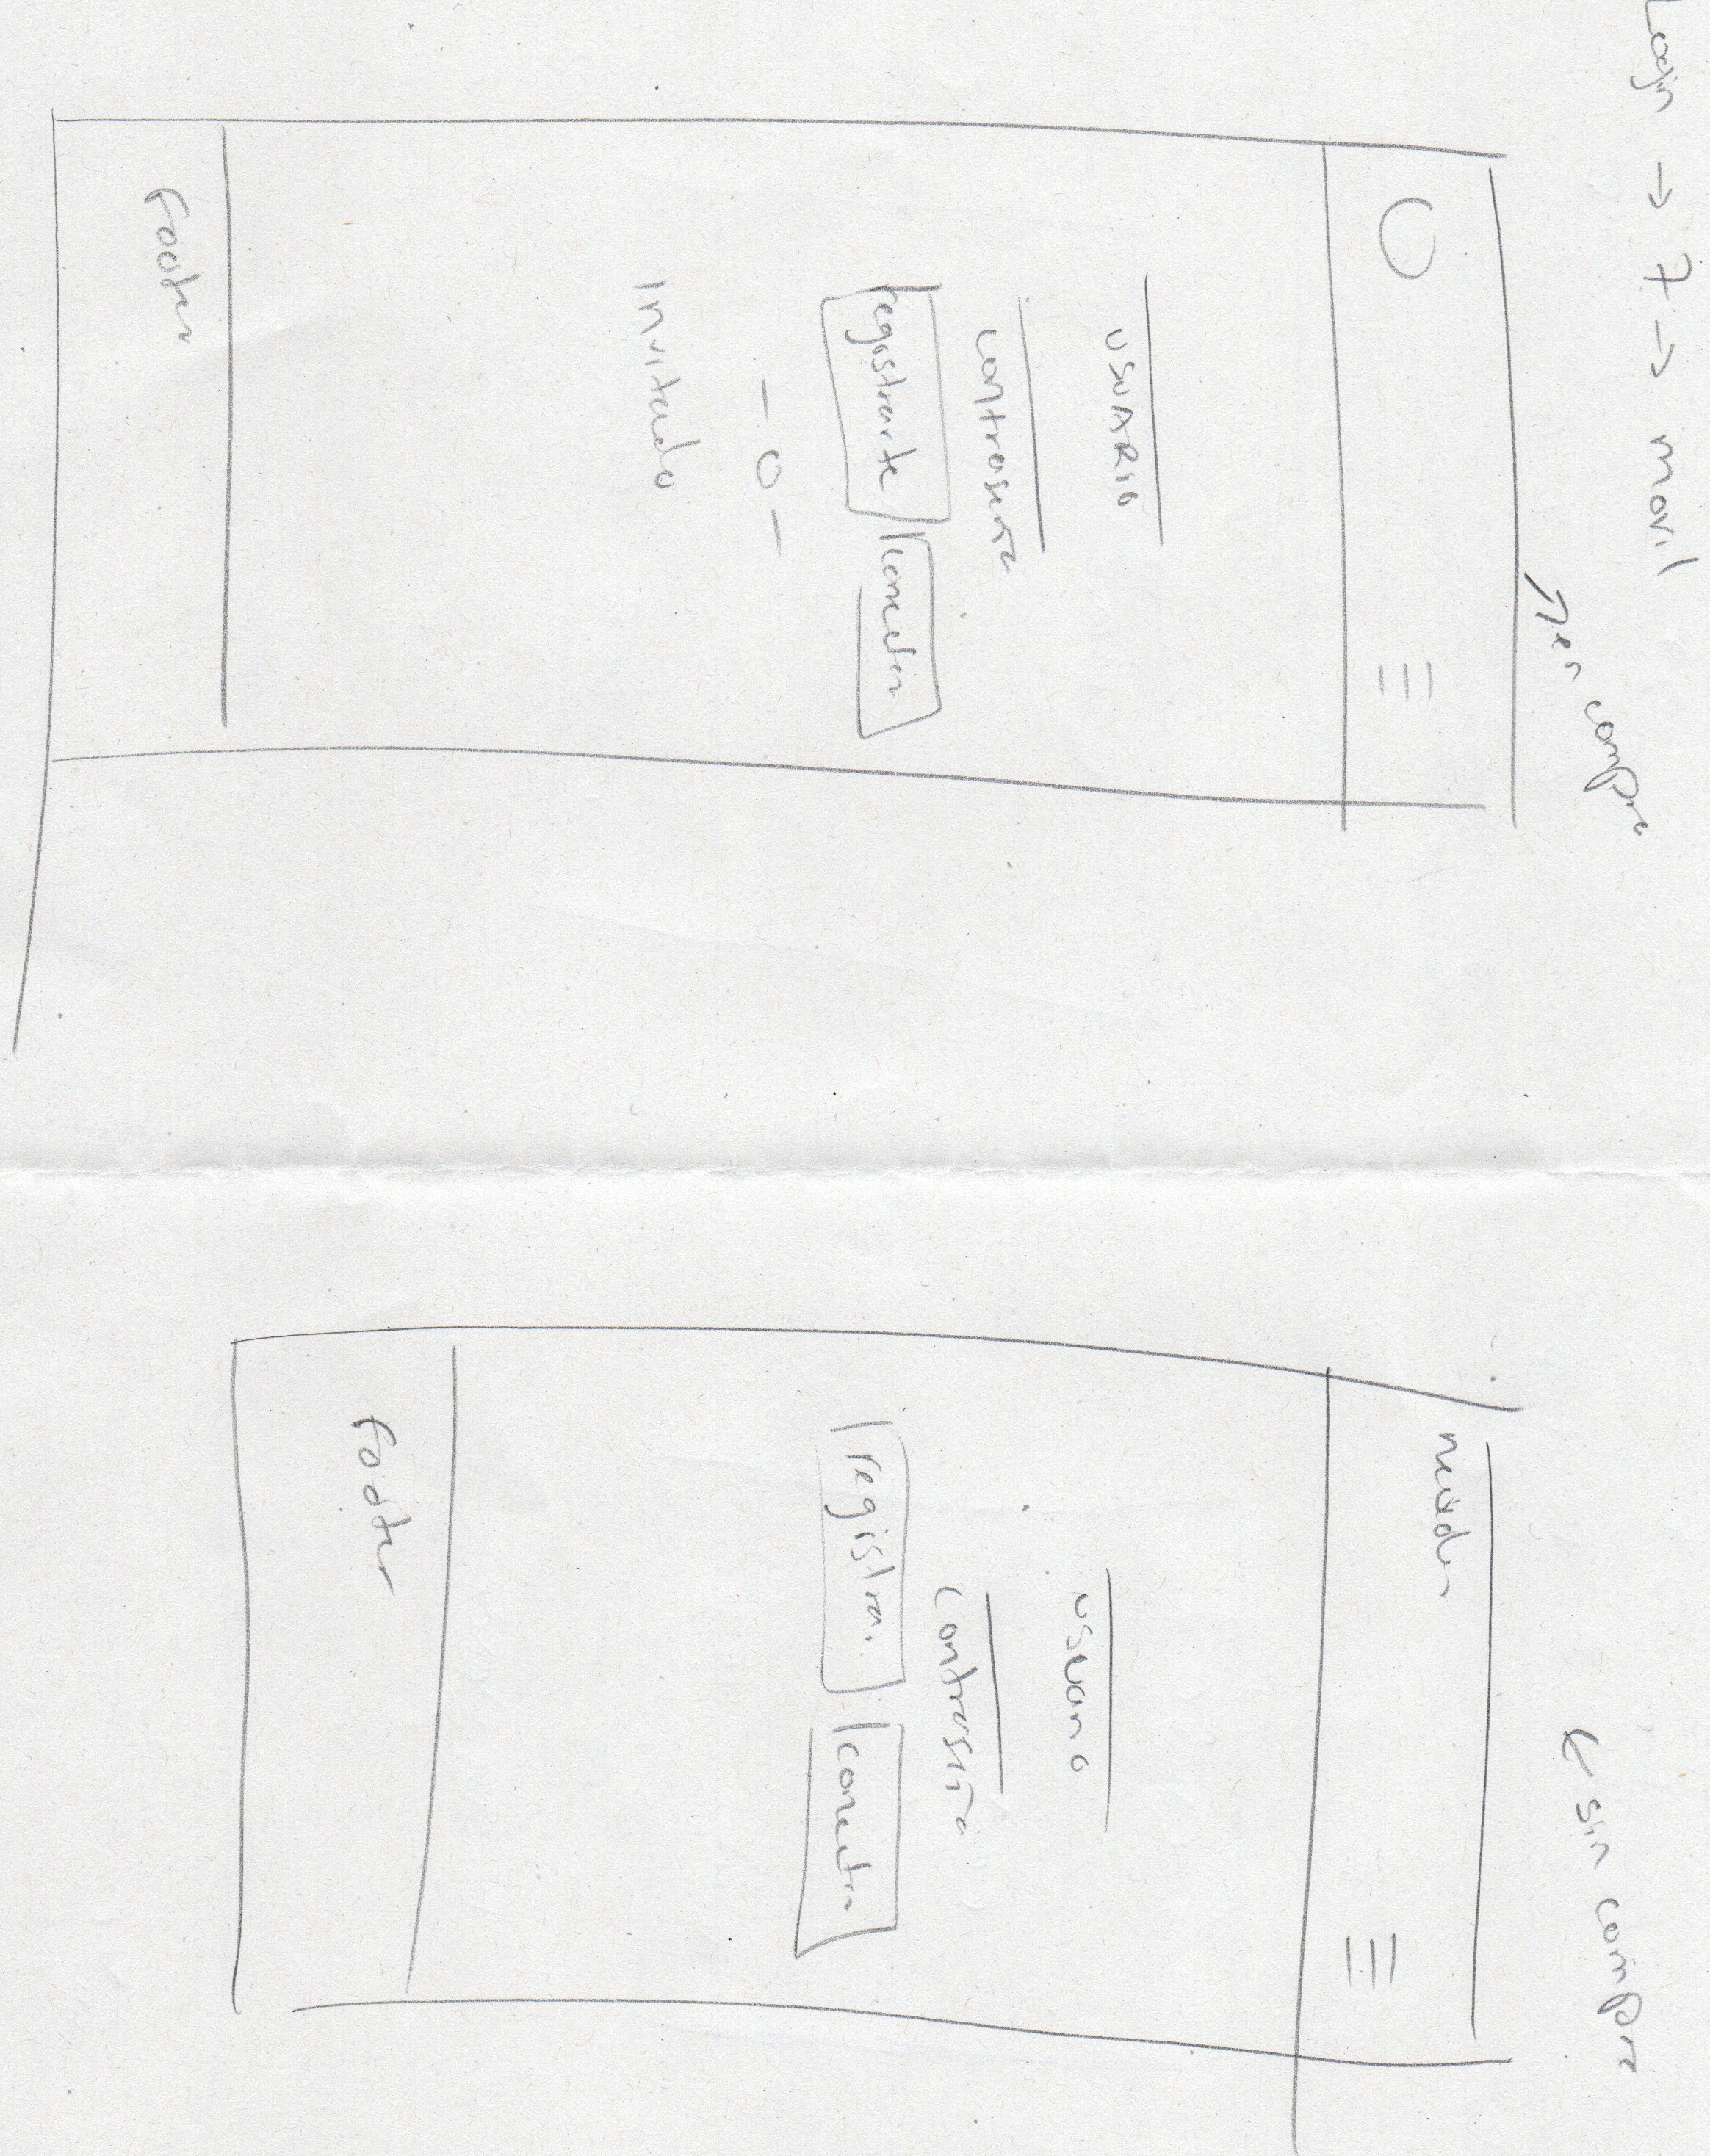 Login → 7 → movil
en compra
USUARIO
contraseña
registrarte conectar
- o -
Invitado
Footer
← sin compra
header
usuario
contraseña
registrar conectar
Footer